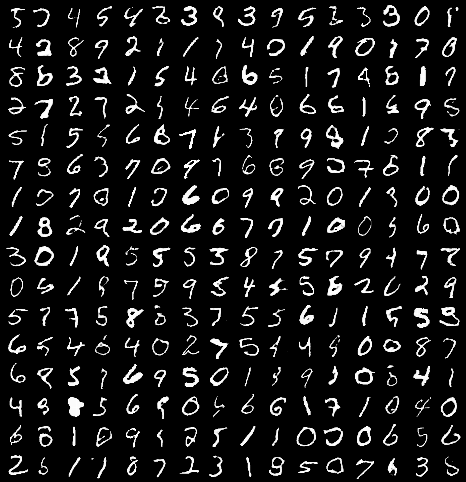 5 7 4 5 4 3 3 9 3 9 5 3 3 0 1
4 2 8 9 2 1 1 7 4 0 1 9 0 1 7 0
8 6 3 2 1 5 4 0 6 5 1 7 4 8 1 9
2 7 2 7 2 4 6 4 0 6 6 1 6 9 5
5 1 5 6 8 7 1 3 9 9 8 1 8 3
7 9 6 3 7 0 9 7 6 8 9 0 7 6 1 1
1 0 7 8 1 0 6 0 9 9 2 0 1 9 0 0
1 8 2 9 2 0 6 6 7 7 1 0 0 5 6 0
3 0 1 9 5 5 5 3 8 7 5 7 9 4 7 7
0 5 1 8 7 5 9 5 4 5 8 2 0 2 9
5 7 7 5 8 8 3 7 5 5 6 1 1 5 5 9
6 5 4 6 4 0 2 7 5 4 9 0 0 8 7
6 8 5 7 6 9 5 0 1 3 9 1 0 8 4 1
4 9 8 5 6 9 0 6 6 1 7 1 0 4 0
6 8 1 0 9 1 2 5 1 1 0 0 0 6 5 6
2 6 1 1 8 7 2 3 1 9 5 0 7 6 3 8